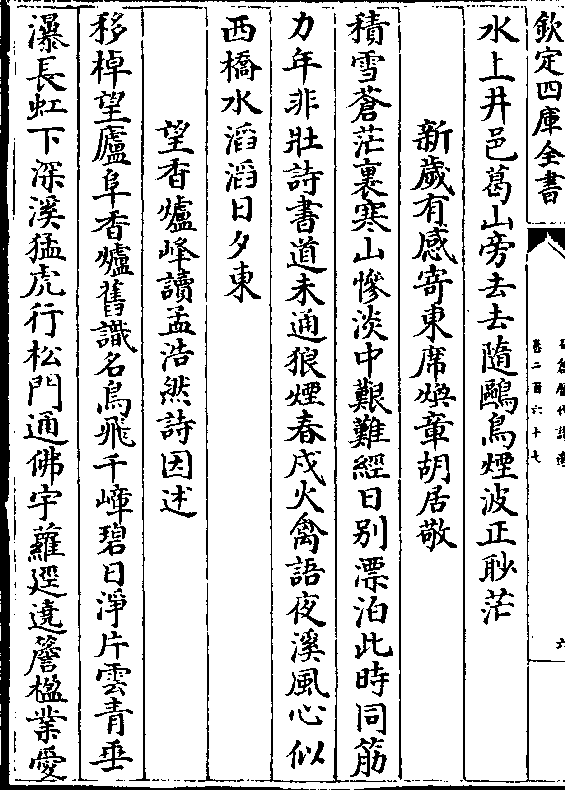 欽定四庫全書
卷二百六十七
六
水上井邑葛山旁去去隨鷗鳥煙波正眇茫
新歲有感寄東席煥章胡居敬
積雪蒼茫裏寒山慘淡中艱難經日别漂泊此時同筋
力年非壯詩書道未通狼煙春戍火禽語夜溪風心似
西橋水滔滔日夕東
望香爐峰讀孟浩然詩因述
移棹望廬阜香爐舊識名鳥飛千嶂碧日淨片雲青垂
瀑長虹下深溪猛虎行松門通佛宇蘿逕遶簷楹業愛